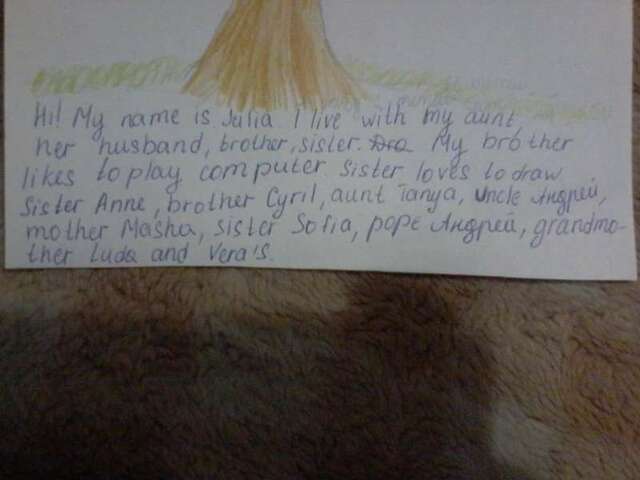 Hi! My name is Julia. I live with my aunt,
her husband, brother, sister. My brother
likes to play computer. Sister loves to draw
Sister Anne, brother Cyril, aunt Tanya, uncle Андрей,
mother Masha, sister Sofia, pape Андрей, grandmo-
ther Luda and Vera's.